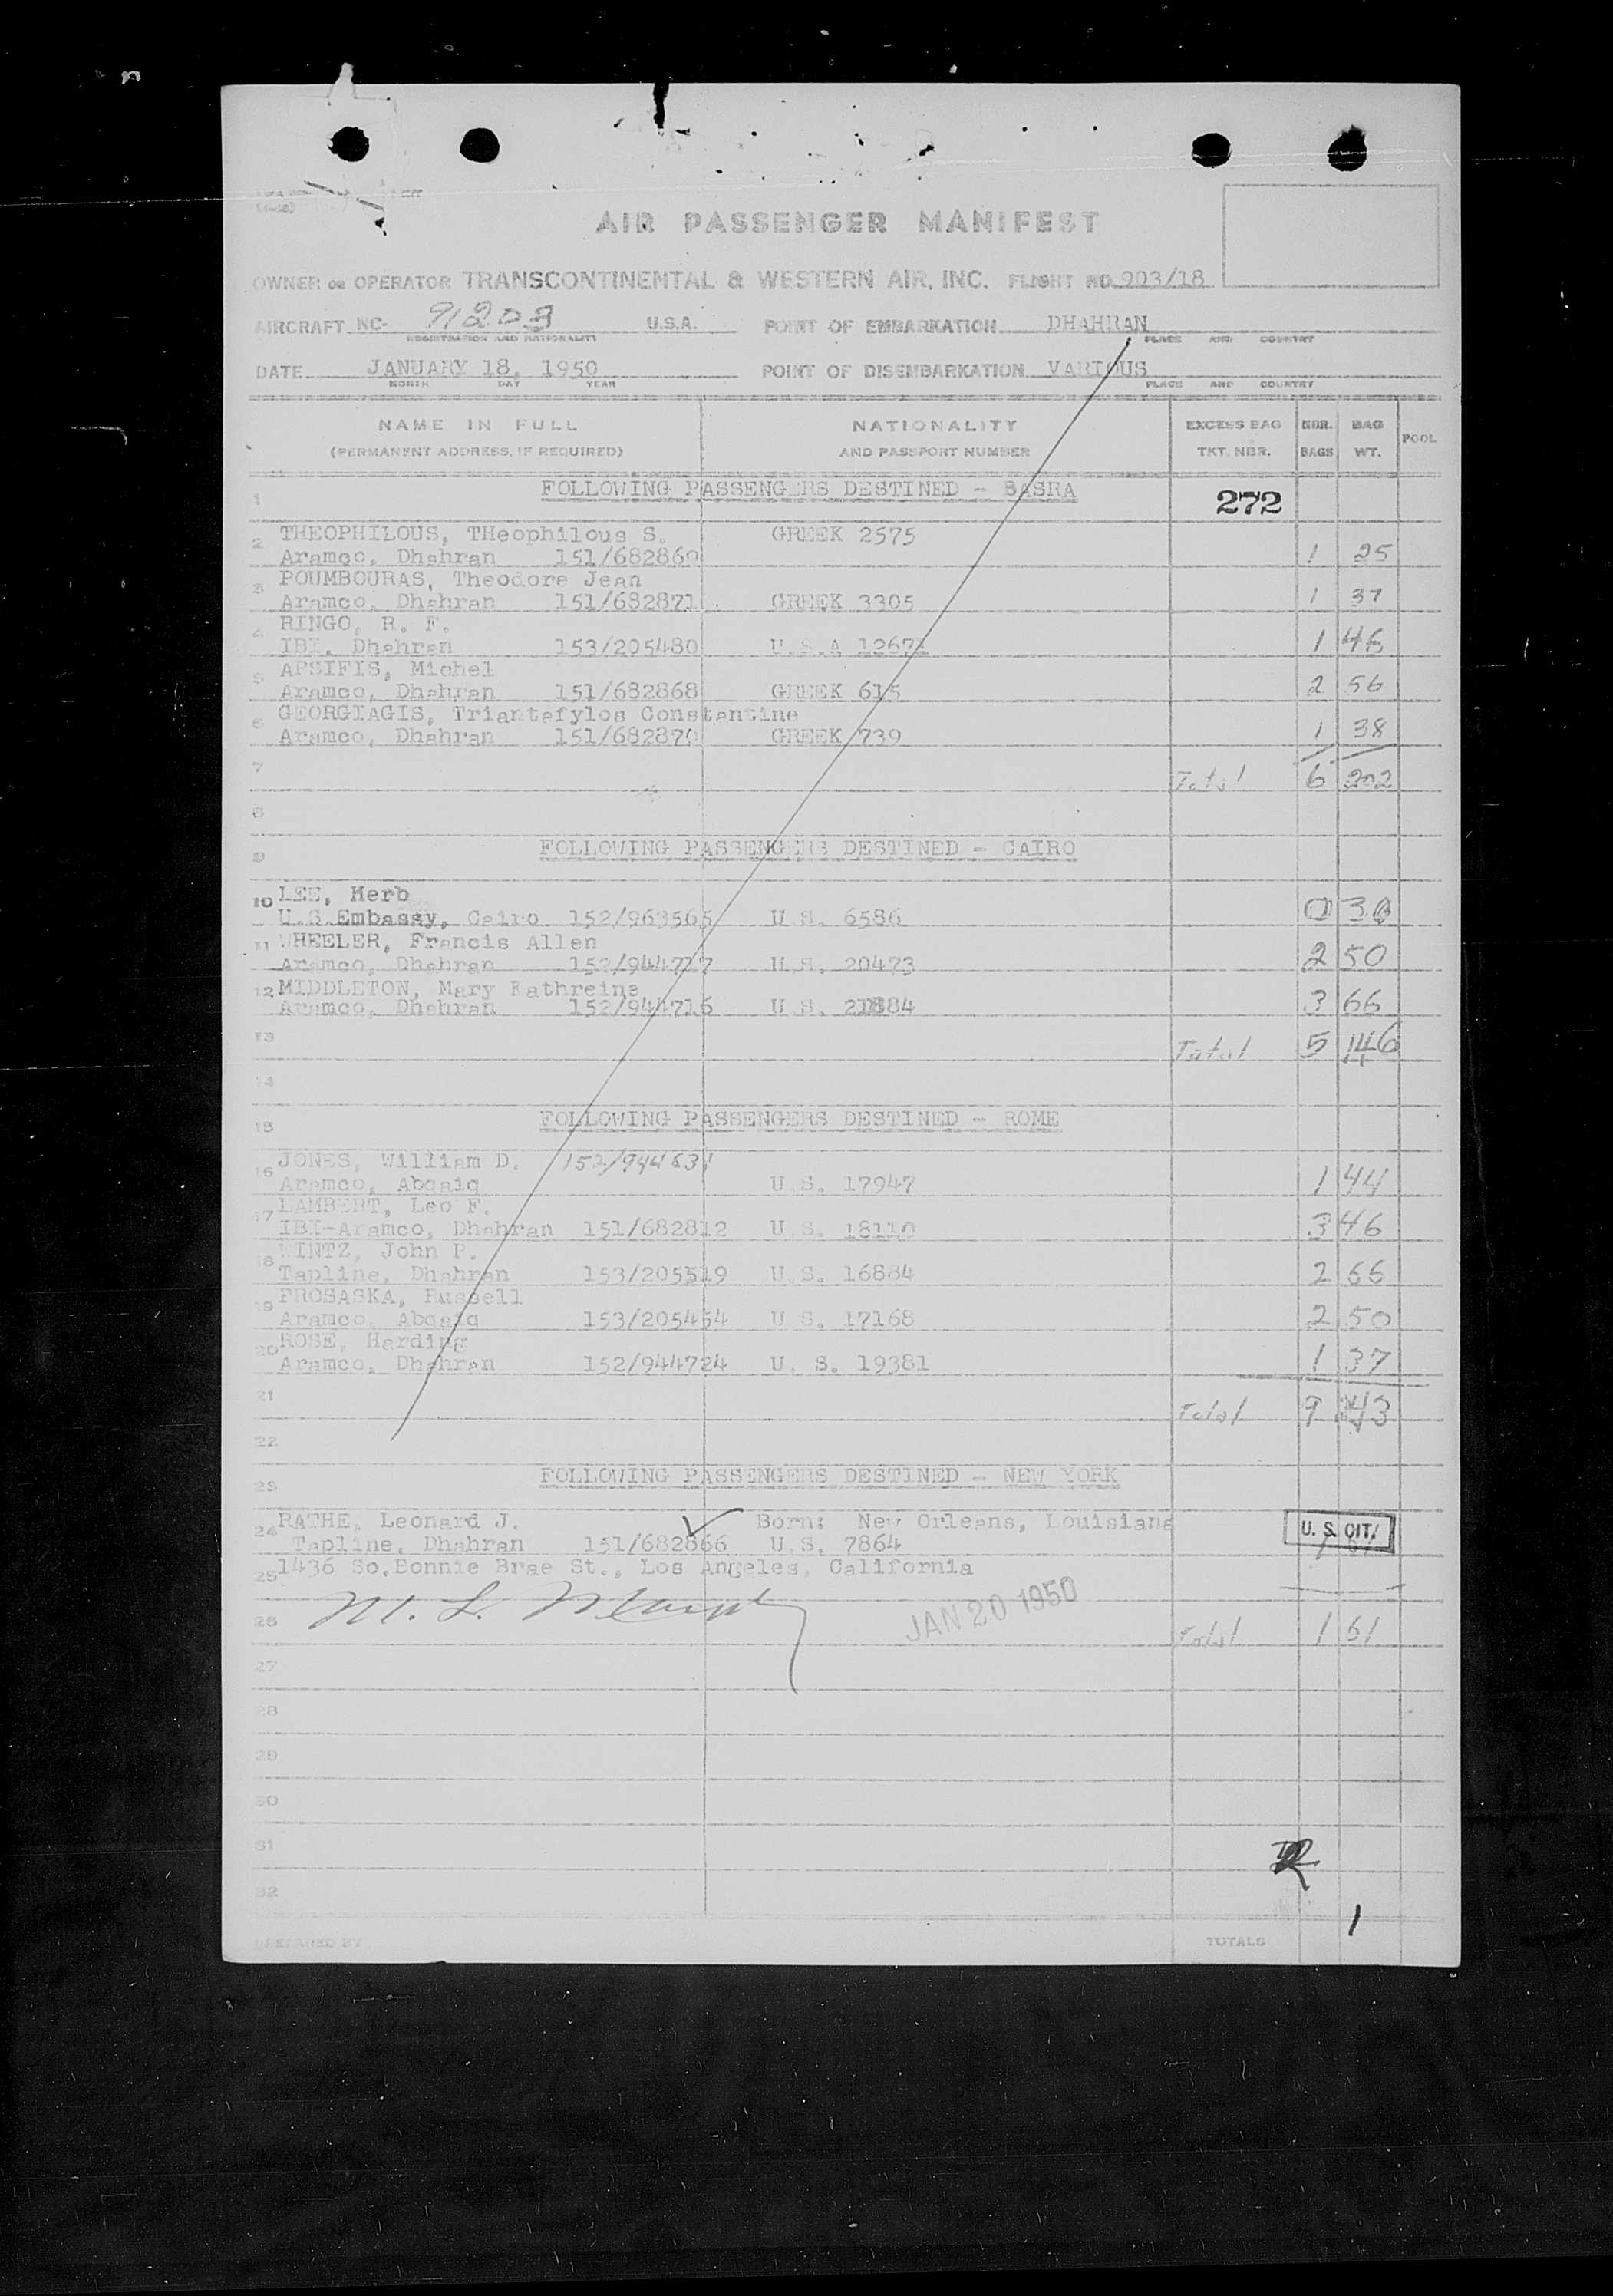 AIR PASSENGER MANIFEST
OWNER OR OPERATOR TRANSCONTINENTAL & WESTERN AIR, INC. FLIGHT NO. 903/18
AIRCRAFT NC- 91203 U.S.A. POINT OF EMBARKATION DHAHRAN
REGISTRATION AND NATIONALITY PLACE AND COUNTRY
DATE JANUARY 18, 1950 POINT OF DISEMBARKATION VARIOUS
MONTH DAY YEAR PLACE AND COUNTRY
NAME IN FULL NATIONALITY EXCESS BAG NBR. BAG POOL
(PERMANENT ADDRESS, IF REQUIRED) AND PASSPORT NUMBER TKT. NBR. BAGS WT.
1 FOLLOWING PASSENGERS DESTINED - BASRA 272
2 THEOPHILOUS, THeophilous S. GREEK 2575
Aramco, Dhahran 151/682869 1 25
3 POUMBOURAS, Theodore Jean
Aramco, Dhahran 151/682871 GREEK 3305 1 37
4 RINGO, R. F.
IBI, Dhahran 153/205480 U.S.A 12671 1 46
5 APSIFIS, Michel
Aramco, Dhahran 151/682868 GREEK 615 2 56
6 GEORGIAGIS, Triantafylos Constantine
Aramco, Dhahran 151/682870 GREEK 739 1 38
7 Total 6 202
8
9 FOLLOWING PASSENGERS DESTINED - CAIRO
10 LEE, Herb
U.S.Embassy, Cairo 152/963565 U.S. 6586 0 30
11 WHEELER, Francis Allen
Aramco, Dhahran 152/944717 U.S. 20473 2 50
12 MIDDLETON, Mary Kathreine
Aramco, Dhahran 152/944716 U.S. 3 66
13 Total 5 146
14
15 FOLLOWING PASSENGERS DESTINED - ROME
16 JONES, William D. 152/944631
Aramco, Abqaiq U.S. 17947 1 44
17 LAMBERT, Leo F.
IBI-Aramco, Dhahran 151/682812 U.S. 18110 3 46
18 WINTZ, John P.
Tapline, Dhahran 153/205519 U.S. 16884 2 66
19 PROSASKA, Russell
Aramco, Abqaiq 153/205454 U.S. 17168 2 50
20 ROSE, Harding
Aramco, Dhahran 152/944724 U. S. 19381 1 37
21 Total 9 243
22
23 FOLLOWING PASSENGERS DESTINED - NEW YORK
24 RATHE, Leonard J. Born: New Orleans, Louisiana
Tapline, Dhahran 151/682866 U.S. 7864 U. S. CIT.
25 1436 So.Bonnie Brae St., Los Angeles, California
26 M. L. Murphy JAN 20 1950 Total 1 61
27
28
29
30
31
32
1
PREPARED BY TOTALS